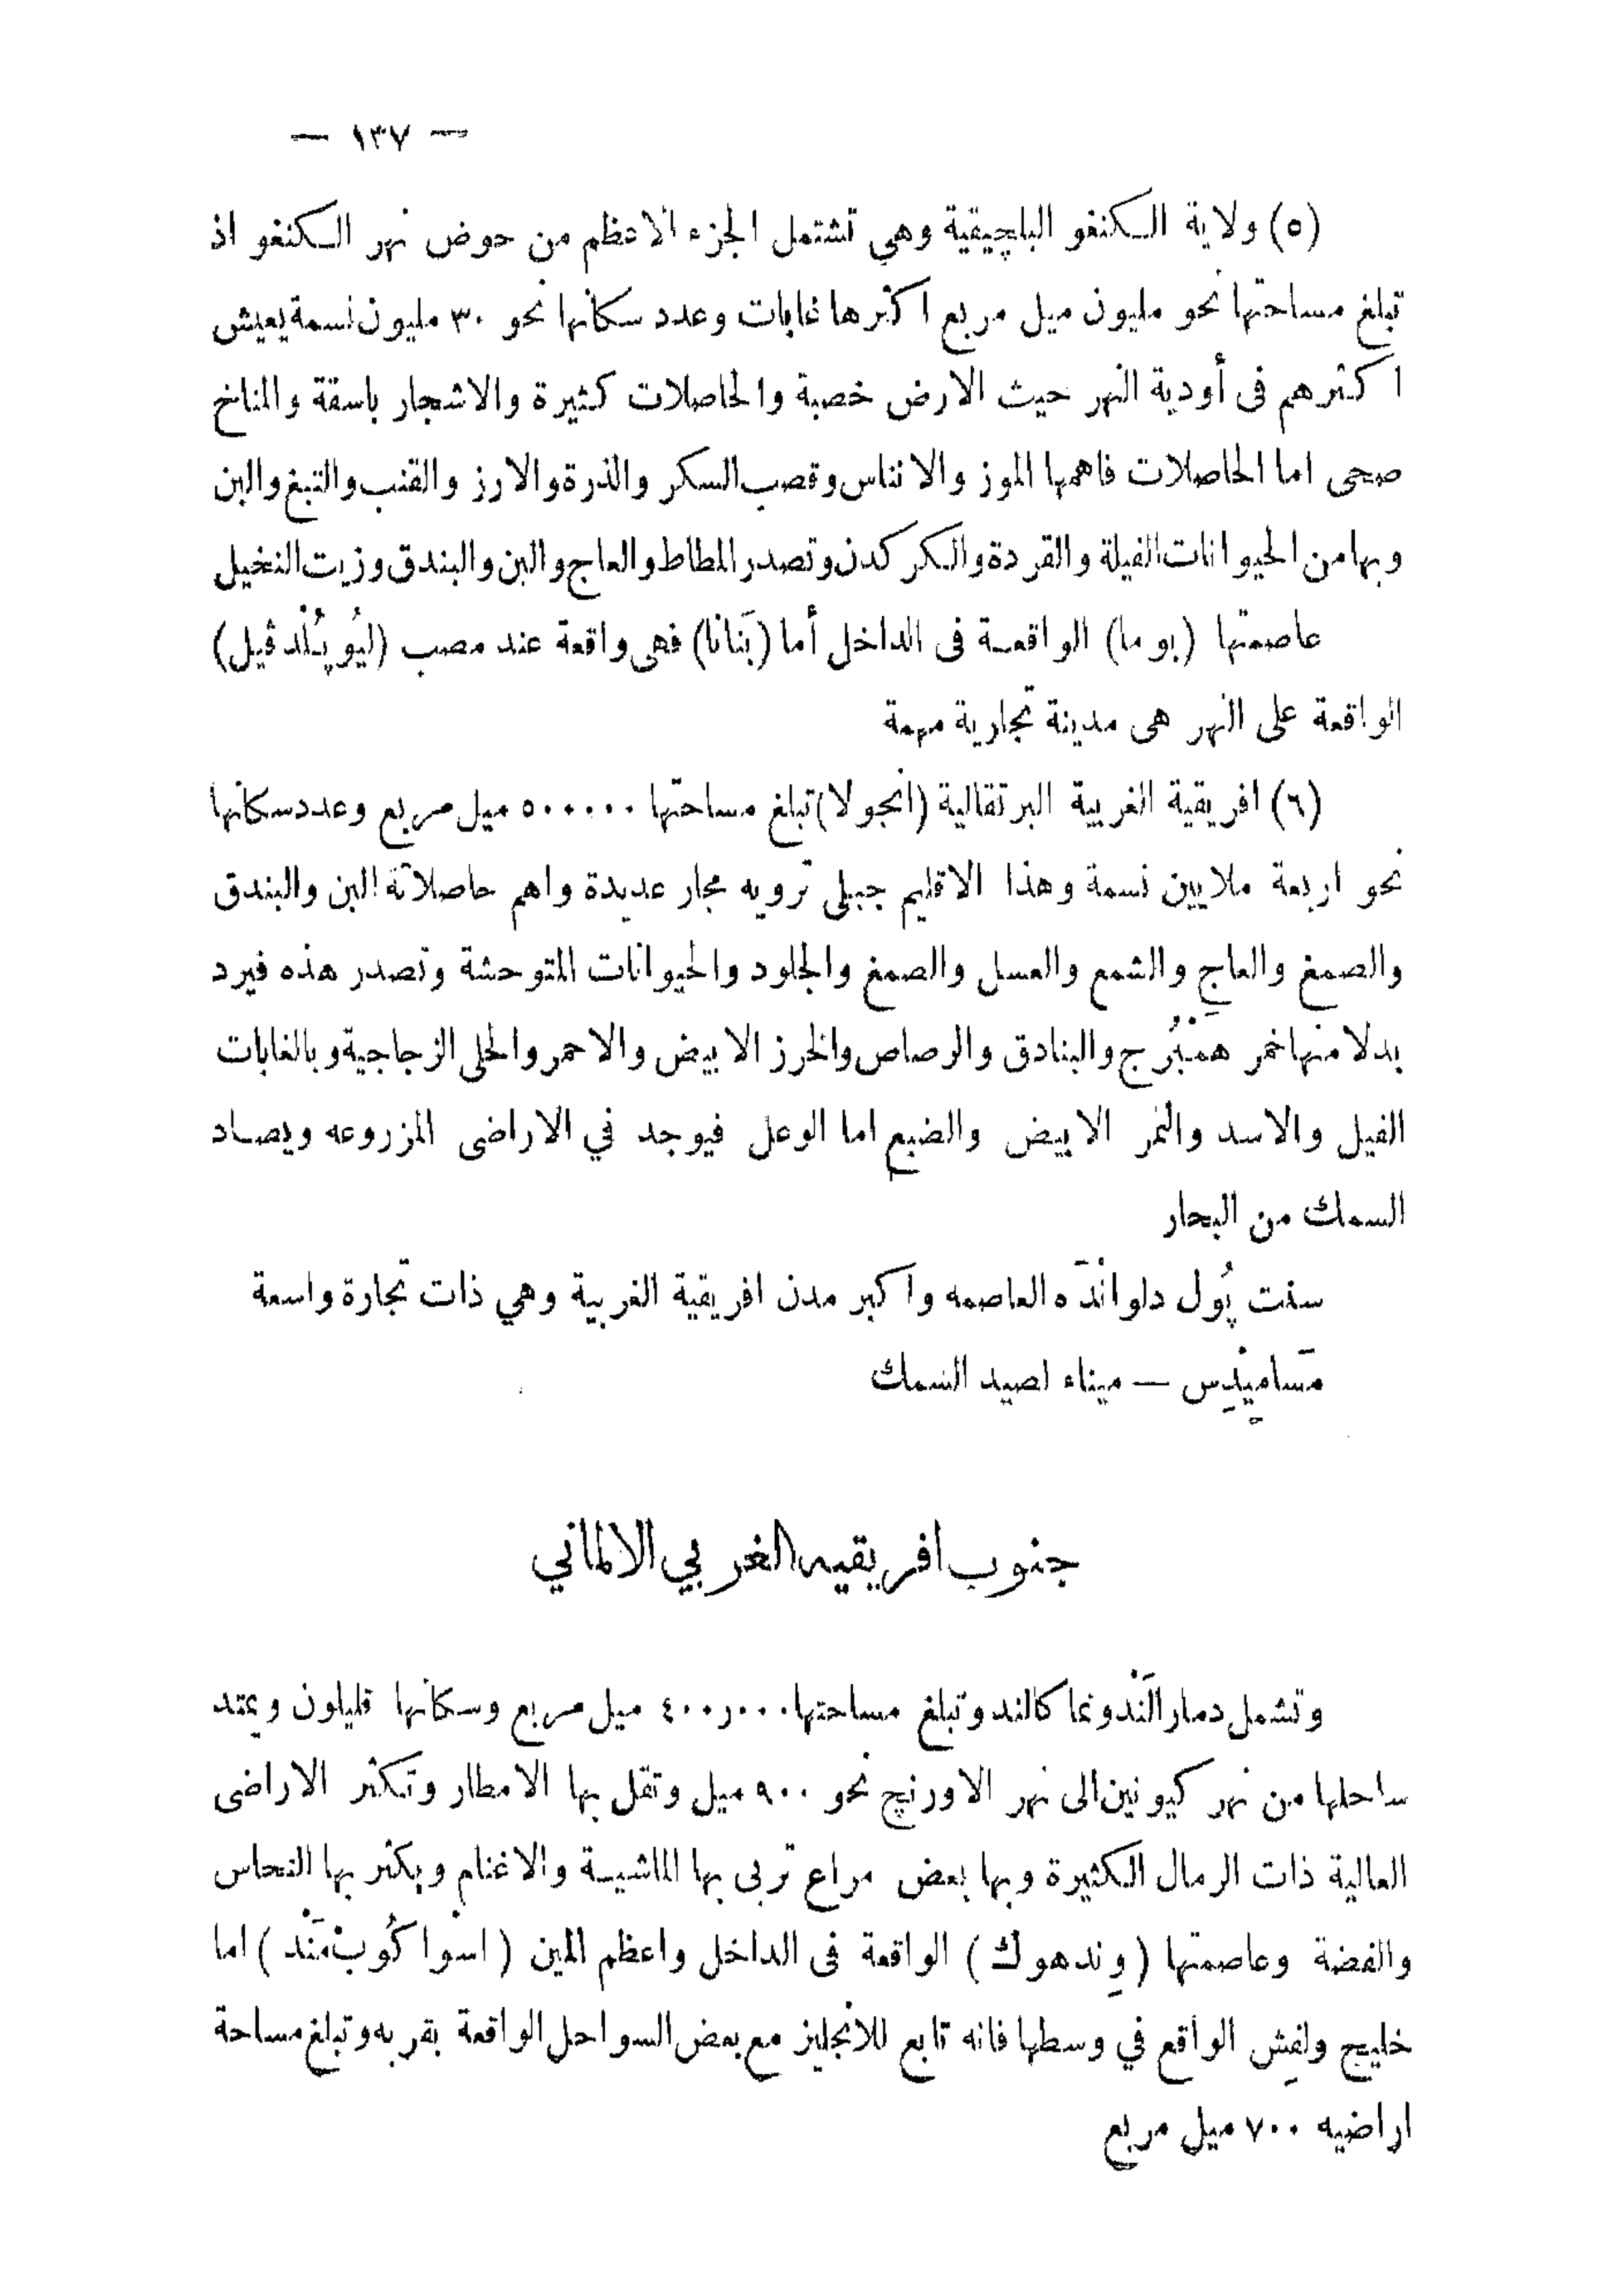 — ١٣٧ —
(٥) ولاية الكنغو البلچيقية وهي تشتمل الجزء الاعظم من حوض نهر الكنغو اذ
تبلغ مساحتها نحو مليون ميل مربع اكثرها غابات وعدد سكانها نحو ٣٠ مليون نسمة يعيش
اكثرهم فى أودية النهر حيث الارض خصبة والحاصلات كثيرة والاشجار باسقة والمناخ
صحى اما الحاصلات فاهمها الموز والاناس وقصب السكر والذرة والارز والقنب والتبغ والبن
وبها من الحيوانات الفيلة والقردة والكركدن وتصدر المطاط والعاج والبن والبندق وزيت النخيل
عاصمتها (بوما) الواقعة فى الداخل أما (بَنانا) فهى واقعة عند مصب (ليُوپُلْدڤيل)
الواقعة على النهر هى مدينة تجارية مهمة
(٦) افريقية الغربية البرتقالية (انجولا) تبلغ مساحتها ٥٠٠٠٠٠ ميل مربع وعدد سكانها
نحو اربعة ملايين نسمة وهذا الاقليم جبلى ترويه مجار عديدة واهم حاصلاته البن والبندق
والصمغ والعاج والشمع والعسل والصمغ والجلود والحيوانات المتوحشة وتصدر هذه فيرد
بدلا منها خمر هَمْبُرج والبنادق والرصاص والخرز الابيض والاحمر والحلى الزجاجية وبالغابات
الفيل والاسد والنمر الابيض والضبع اما الوعل فيوجد في الاراضى المزروعه ويصاد
السمك من البحار
سنت پُول دلواندَه العاصمه واكبر مدن افريقية الغربية وهي ذات تجارة واسعة
مَساميْدِس — ميناء لصيد السمك
جنوب افريقيه الغربي الالماني
وتشمل دمارالَنْد ونماكالند وتبلغ مساحتها ٤٠٠٫٠٠٠ ميل مربع وسكانها قليلون ويمتد
ساحلها من نهر كيونين الى نهر الاورنچ نحو ٩٠٠ ميل وتقل بها الامطار وتكثر الاراضى
العالية ذات الرمال الكثيرة وبها بعض مراع تربى بها الماشية والاغنام ويكثر بها النحاس
والفضة وعاصمتها (وِندهوك) الواقعة فى الداخل واعظم المين (اسْواكُوبْمَنْد) اما
خليج ولفِش الواقع في وسطها فانه تابع للانجليز مع بعض السواحل الواقعة بقربه وتبلغ مساحة
اراضيه ٧٠٠ ميل مربع